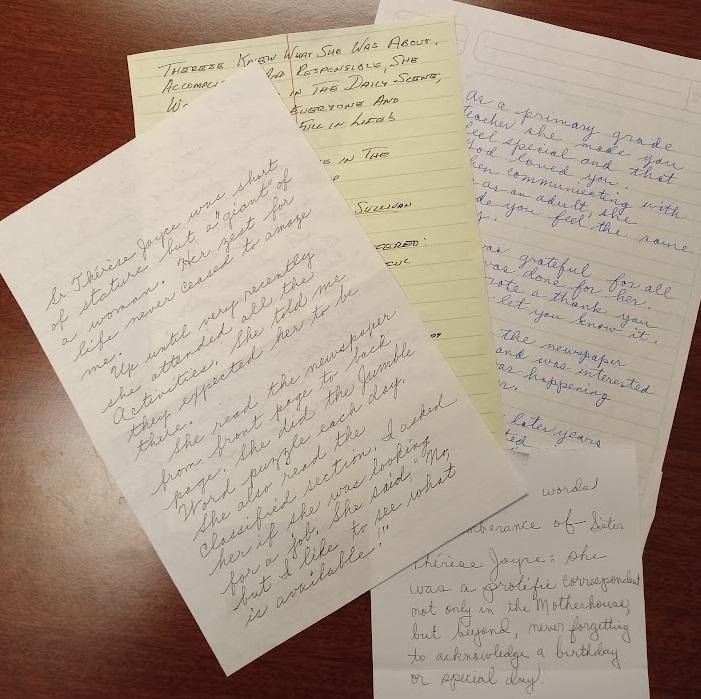 Sr. Thérèse Joyce was short
of stature but a "giant" of
a woman. Her zest for
life never ceased to amaze
me.
Up until very recently
she attended all the
Activities. She told me
they expected her to be
there.
She read the newspaper
from front page to back
page. She did the Jumble
Word puzzle each day.
She also read the
Classified section. I asked
her if she was looking
for a job. She said, "No,
but I like to see what
is available!"
THERESE KNEW WHAT SHE WAS ABOUT.
AND RESPONSIBLE, SHE
IN THE DAILY SCENE,
EVERYONE AND
FILL IN LIFE'S
IN THE
SULLIVAN
as a primary grade
teacher she made you
feel special and that
God loved you.
when communicating with
as an adult, she
you feel the same
was grateful for all
was done for her.
a thank you
let you know it.
the newspaper
and was interested
happening
later years
words
of Sister
Thérèse Joyce: she
was a prolific correspondent
not only in the Motherhouse,
but beyond, never forgetting
to acknowledge a birthday
or special day.